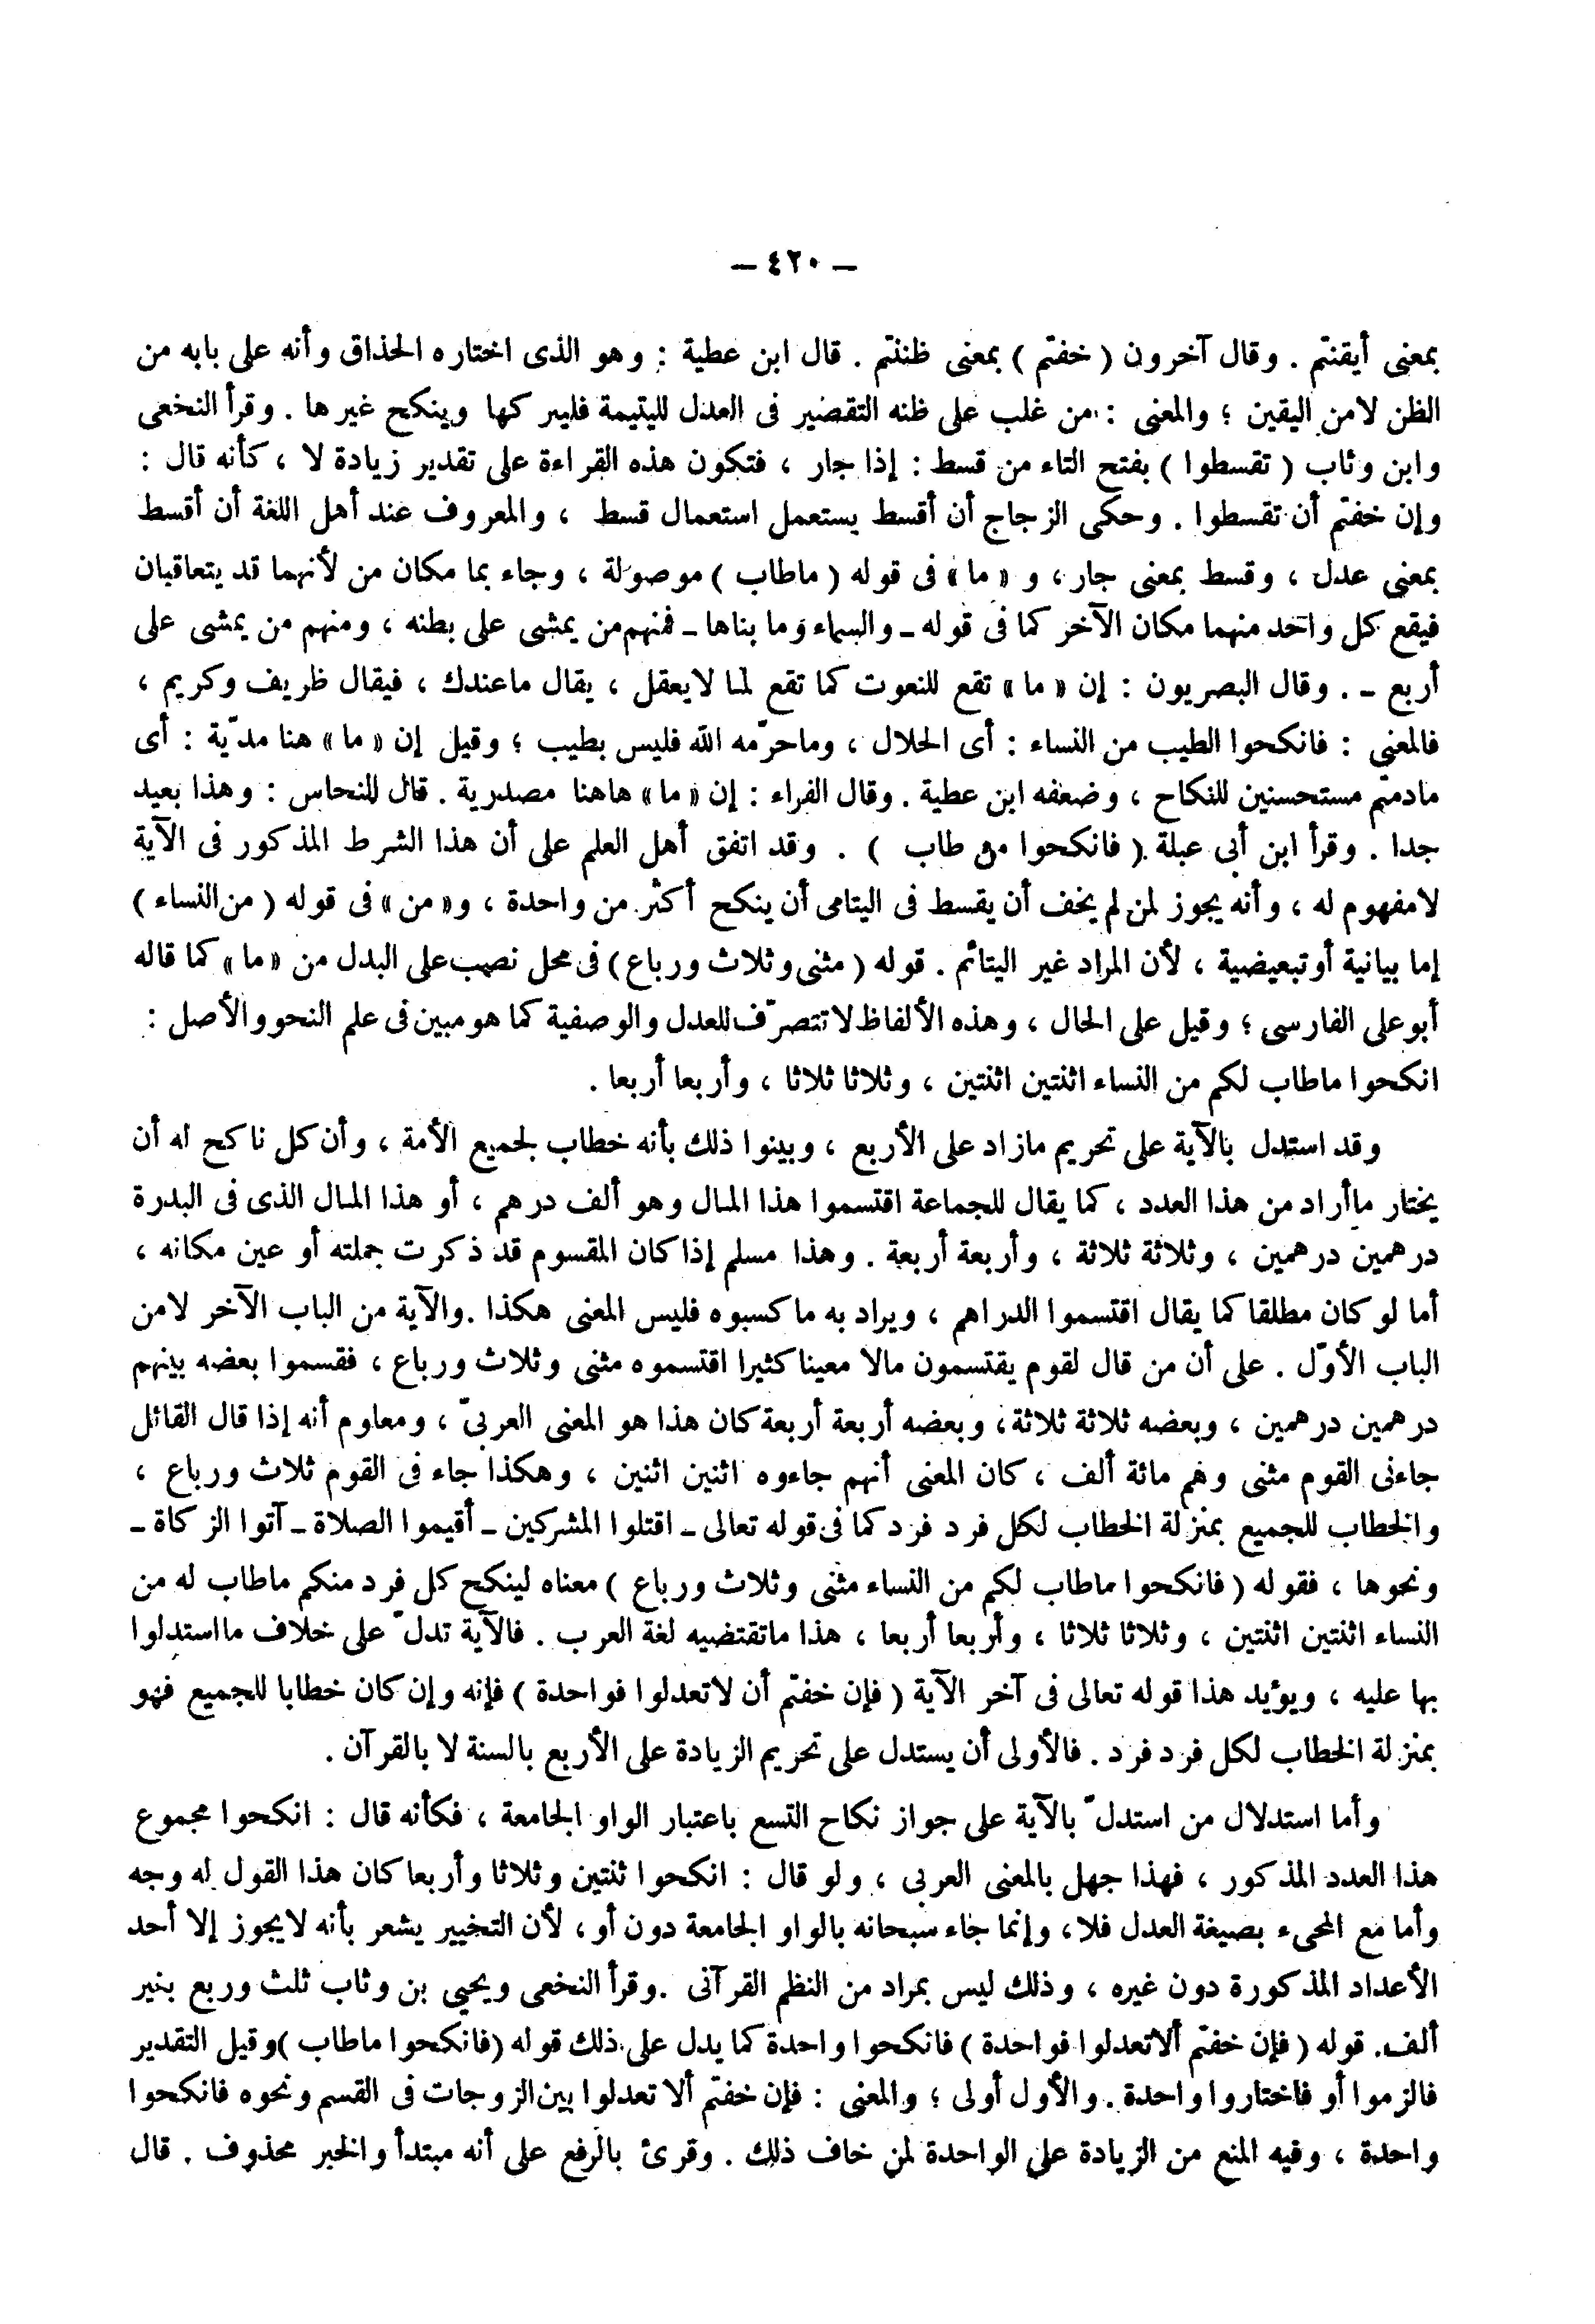 — ٤٢٠ —
بمعنى أيقنتم . وقال آخرون ( خفتم ) بمعنى ظننتم . قال ابن عطية : وهو الذى اختاره الحذاق وأنه على بابه من
الظن لامن اليقين ؛ والمعنى : من غلب على ظنه التقصير فى العدل لليتيمة فليتركها وينكح غيرها . وقرأ النخعى
وابن وثاب ( تقسطوا ) بفتح التاء من قسط : إذا جار ، فتكون هذه القراءة على تقدير زيادة لا ، كأنه قال :
وإن خفتم أن تقسطوا . وحكى الزجاج أن أقسط يستعمل استعمال قسط ، والمعروف عند أهل اللغة أن أقسط
بمعنى عدل ، وقسط بمعنى جار ، و « ما » فى قوله ( ماطاب ) موصولة ، وجاء بما مكان من لأنهما قد يتعاقبان
فيقع كل واحد منهما مكان الآخر كما فى قوله ـ والسماء وما بناها ـ فمنهم من يمشى على بطنه ، ومنهم من يمشى على
أربع ـ . وقال البصريون : إن « ما » تقع للنعوت كما تقع لما لايعقل ، يقال ماعندك ، فيقال ظريف وكريم ،
فالمعنى : فانكحوا الطيب من النساء : أى الحلال ، وماحرّمه الله فليس بطيب ؛ وقيل إن « ما » هنا مدّية : أى
مادمتم مستحسنين للنكاح ، وضعفه ابن عطية . وقال الفراء : إن « ما » هاهنا مصدرية . قال النحاس : وهذا بعيد
جدا . وقرأ ابن أبى عبلة ( فانكحوا من طاب ) . وقد اتفق أهل العلم على أن هذا الشرط المذكور فى الآية
لامفهوم له ، وأنه يجوز لمن لم يخف أن يقسط فى اليتامى أن ينكح أكثر من واحدة ، و« من » فى قوله ( من النساء )
إما بيانية أو تبعيضية ، لأن المراد غير اليتائم . قوله ( مثنى وثلاث ورباع ) فى محل نصب على البدل من « ما » كما قاله
أبو على الفارسى ؛ وقيل على الحال ، وهذه الألفاظ لا تتصرّف للعدل والوصفية كما هو مبين فى علم النحو والأصل :
انكحوا ماطاب لكم من النساء اثنتين اثنتين ، وثلاثا ثلاثا ، وأربعا أربعا .
وقد استدل بالآية على تحريم مازاد على الأربع ، وبينوا ذلك بأنه خطاب لجميع الأمة ، وأن كل ناكح له أن
يختار ماأراد من هذا العدد ، كما يقال للجماعة اقتسموا هذا المال وهو ألف درهم ، أو هذا المال الذى فى البدرة
درهمين درهمين ، وثلاثة ثلاثة ، وأربعة أربعة . وهذا مسلم إذا كان المقسوم قد ذكرت جملته أو عين مكانه ،
أما لو كان مطلقا كما يقال اقتسموا الدراهم ، ويراد به ماكسبوه فليس المعنى هكذا . والآية من الباب الآخر لامن
الباب الأوّل . على أن من قال لقوم يقتسمون مالا معينا كثيرا اقتسموه مثنى وثلاث ورباع ، فقسموا بعضه بينهم
درهمين درهمين ، وبعضه ثلاثة ثلاثة ، وبعضه أربعة أربعة كان هذا هو المعنى العربىّ ، ومعلوم أنه إذا قال القائل
جاءنى القوم مثنى وهم مائة ألف ، كان المعنى أنهم جاءوه اثنين اثنين ، وهكذا جاء فى القوم ثلاث ورباع ،
والخطاب للجميع بمنزلة الخطاب لكل فرد فرد كما فى قوله تعالى ـ اقتلوا المشركين ـ أقيموا الصلاة ـ آتوا الزكاة ـ
ونحوها ، فقوله ( فانكحوا ماطاب لكم من النساء مثنى وثلاث ورباع ) معناه لينكح كل فرد منكم ماطاب له من
النساء اثنتين اثنتين ، وثلاثا ثلاثا ، وأربعا أربعا ، هذا ماتقتضيه لغة العرب . فالآية تدلّ على خلاف مااستدلوا
بها عليه ، ويؤيد هذا قوله تعالى فى آخر الآية ( فإن خفتم أن لاتعدلوا فواحدة ) فإنه وإن كان خطابا للجميع فهو
بمنزلة الخطاب لكل فرد فرد . فالأولى أن يستدل على تحريم الزيادة على الأربع بالسنة لا بالقرآن .
وأما استدلال من استدلّ بالآية على جواز نكاح التسع باعتبار الواو الجامعة ، فكأنه قال : انكحوا مجموع
هذا العدد المذكور ، فهذا جهل بالمعنى العربى ، ولو قال : انكحوا ثنتين وثلاثا وأربعا كان هذا القول له وجه
وأما مع المجىء بصيغة العدل فلا ، وإنما جاء سبحانه بالواو الجامعة دون أو ، لأن التخيير يشعر بأنه لايجوز إلا أحد
الأعداد المذكورة دون غيره ، وذلك ليس بمراد من النظم القرآنى . وقرأ النخعى ويحيى بن وثاب ثلث وربع بغير
ألف. قوله ( فإن خفتم ألاتعدلوا فواحدة ) فانكحوا واحدة كما يدل على ذلك قوله (فانكحوا ماطاب )وقيل التقدير
فالزموا أو فاختاروا واحدة . والأول أولى ؛ والمعنى : فإن خفتم ألا تعدلوا بين الزوجات فى القسم ونحوه فانكحوا
واحدة ، وفيه المنع من الزيادة على الواحدة لمن خاف ذلك . وقرئ بالرفع على أنه مبتدأ والخبر محذوف . قال